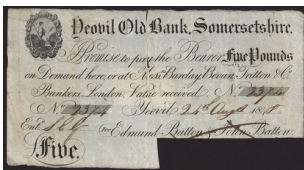 Yeovil Old Bank, Somersetshire.
Promise to pay the Bearer Five Pounds
on Demand here, or at Messrs Barclay Bevan Tritton & Co.
Bankers London. Value received.
No Yeovil 24th Augt 18
Entd For Edmund Batten & John Batten.
Five.